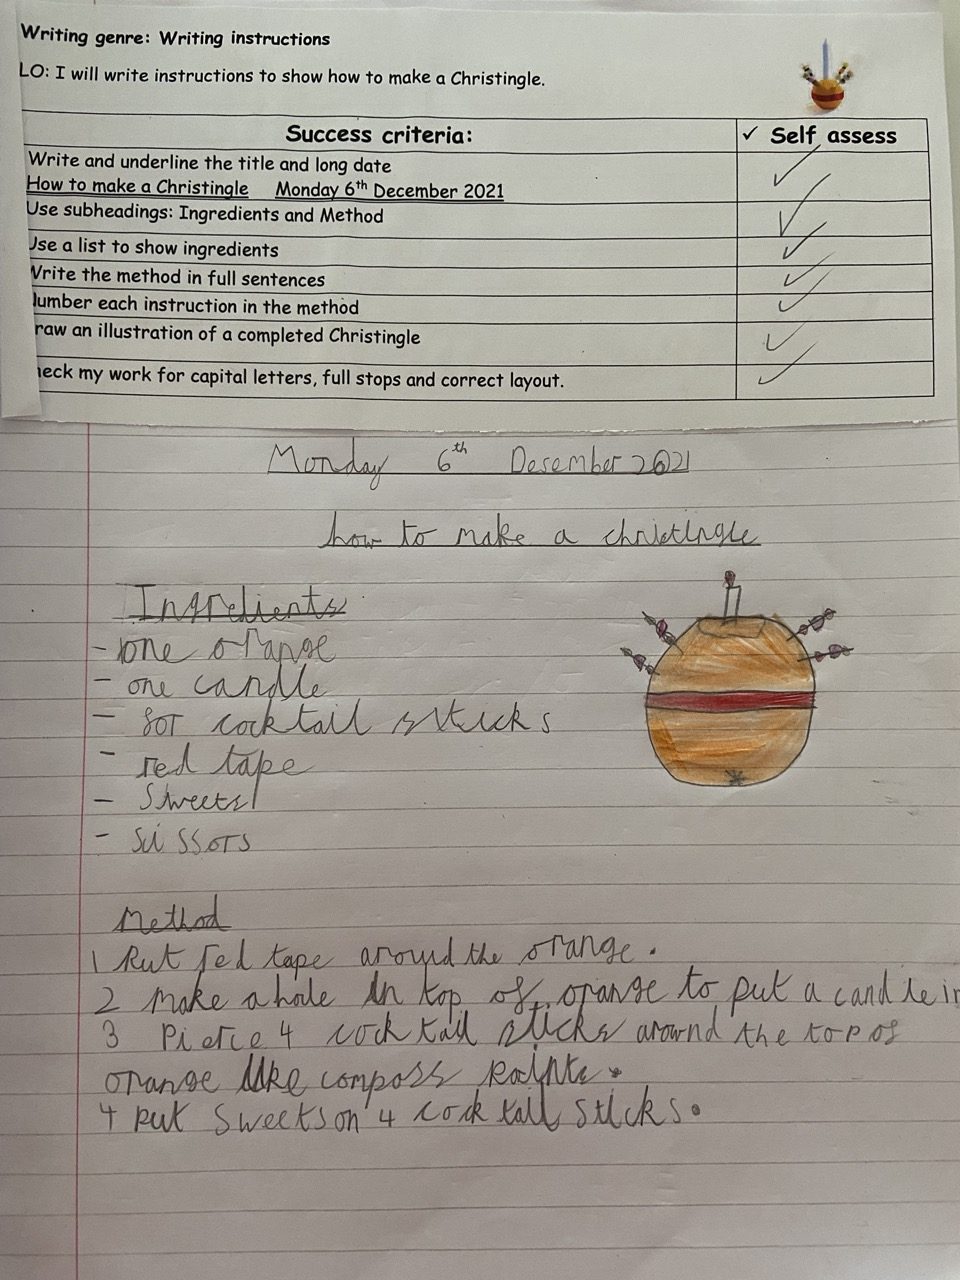 Writing genre: Writing instructions
LO: I will write instructions to show how to make a Christingle.
Success criteria:
✓ Self assess
Write and underline the title and long date
How to make a Christingle Monday 6th December 2021
Use subheadings: Ingredients and Method
Use a list to show ingredients
Write the method in full sentences
Number each instruction in the method
raw an illustration of a completed Christingle
heck my work for capital letters, full stops and correct layout.
Monday 6th Desember 2021
how to make a christingle
Ingredients
- one orange
- one candle
- for cocktail sticks
- red tape
- Sweets
- scissors
Method
1 Put red tape around the orange.
2 make a hole in top of orange to put a candle in
3 Pierce 4 cocktail sticks around the top of
orange like compass points.
4 put sweets on 4 cocktail sticks.